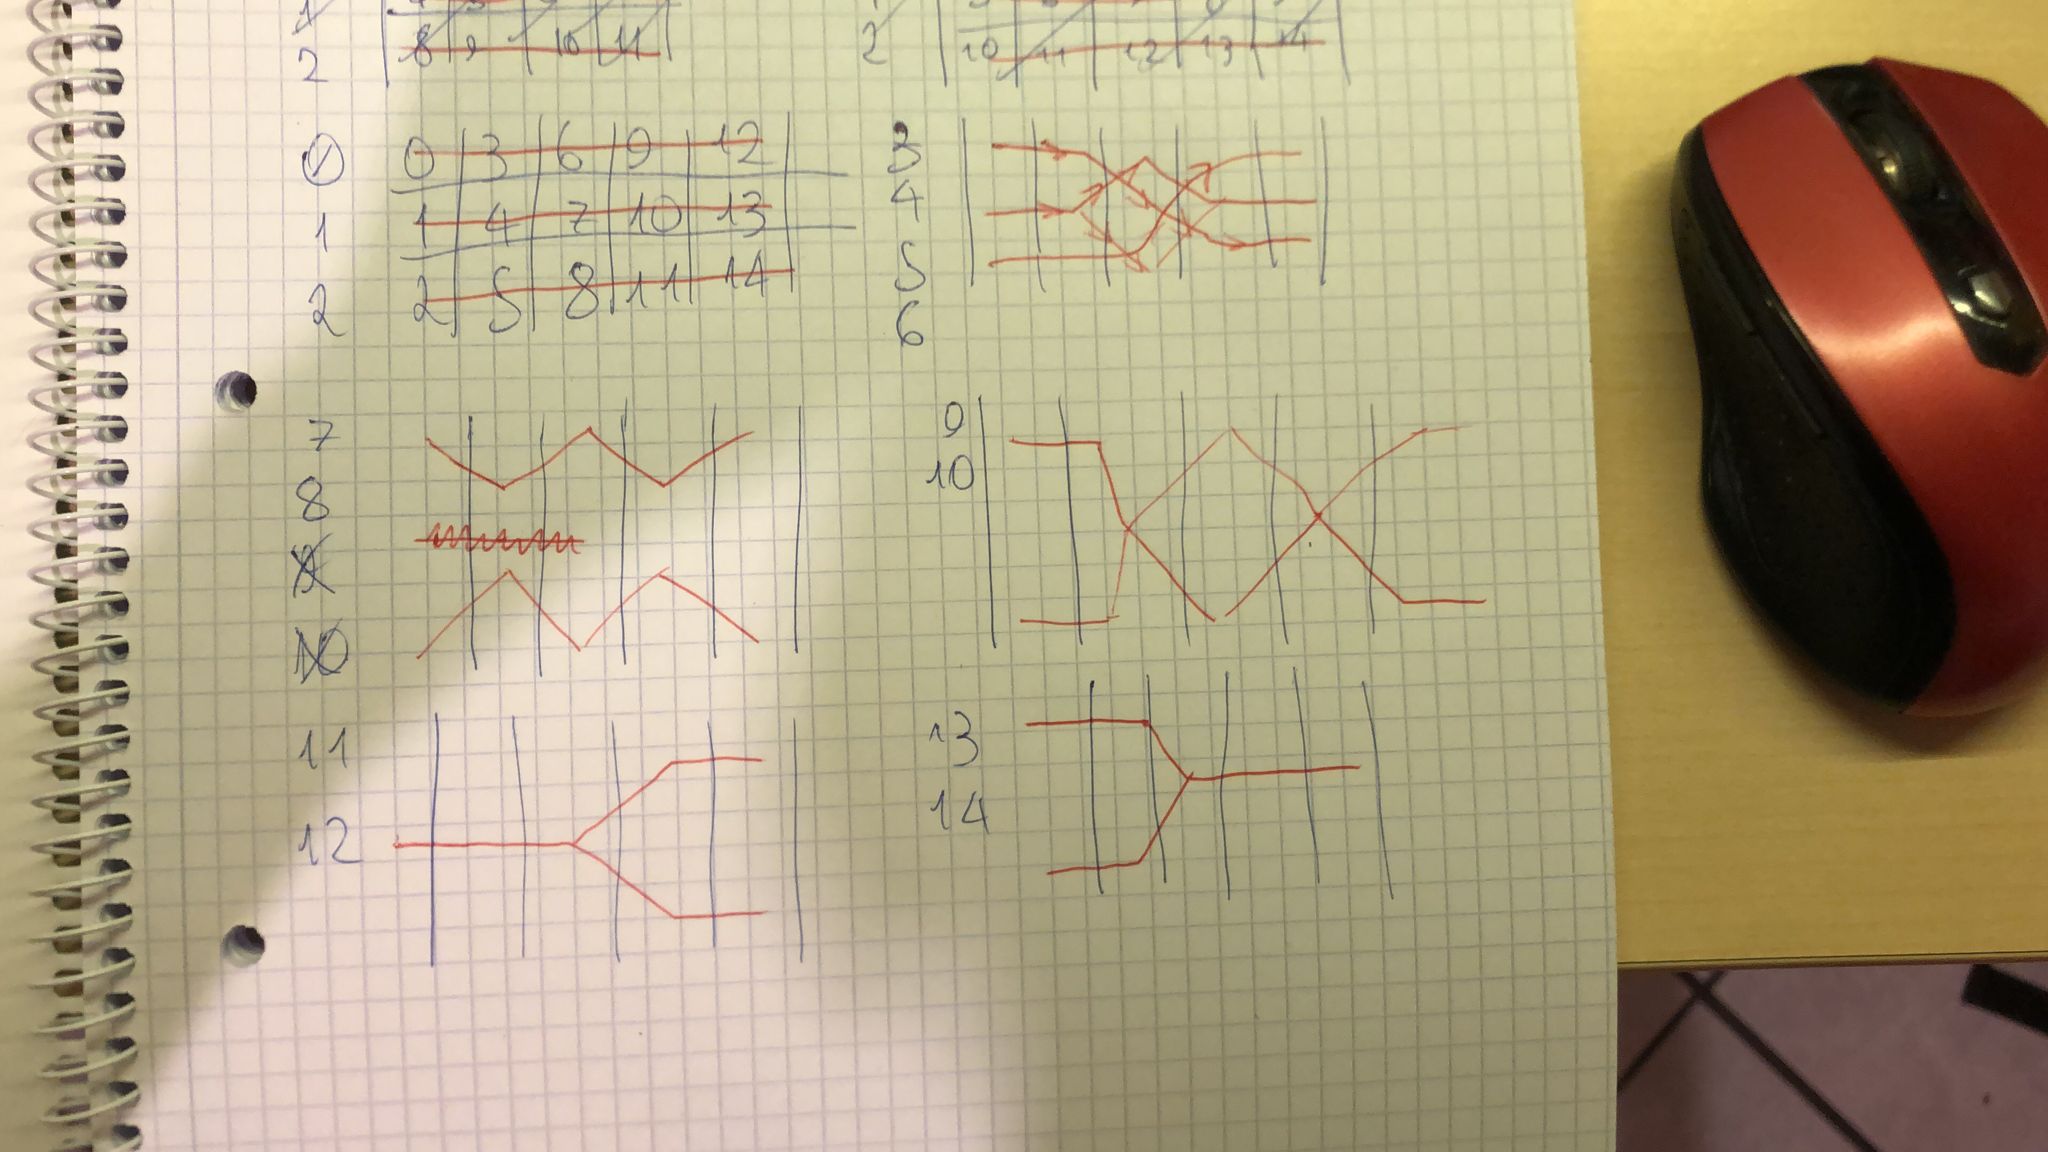 2
8 9 10 11
2
10 11 12 13 14
0
0 3 6 9 12
1
1 4 7 10 13
2
2 5 8 11 14
3
4
5
6
7
8
9
10
11
12
13
14